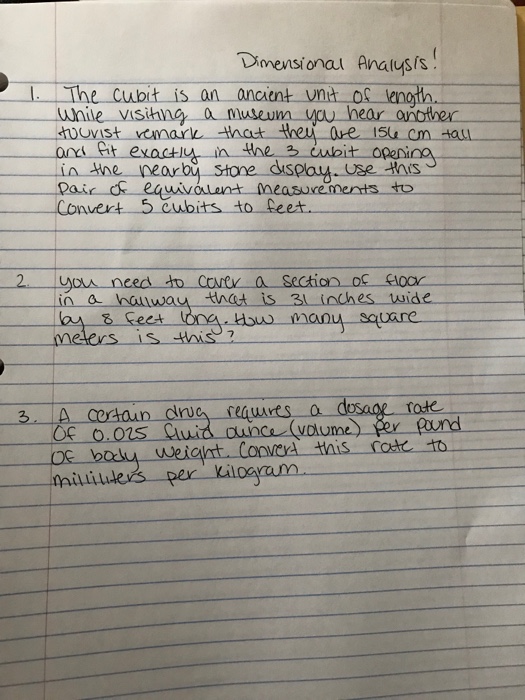 Dimensional Analysis!
1. The cubit is an ancient unit of length.
While visiting a museum you hear another
tourist remark that they are 156 cm tall
and fit exactly in the 3 cubit opening
in the nearby stone display. Use this
pair of equivalent measurements to
Convert 5 cubits to feet.
2. you need to cover a section of floor
in a hallway that is 31 inches wide
by 8 feet long. How many square
meters is this?
3. A certain drug requires a dosage rate
Of 0.025 fluid ounce (volume) per pound
OF body weight. Convert this rate to
milliliters per kilogram.